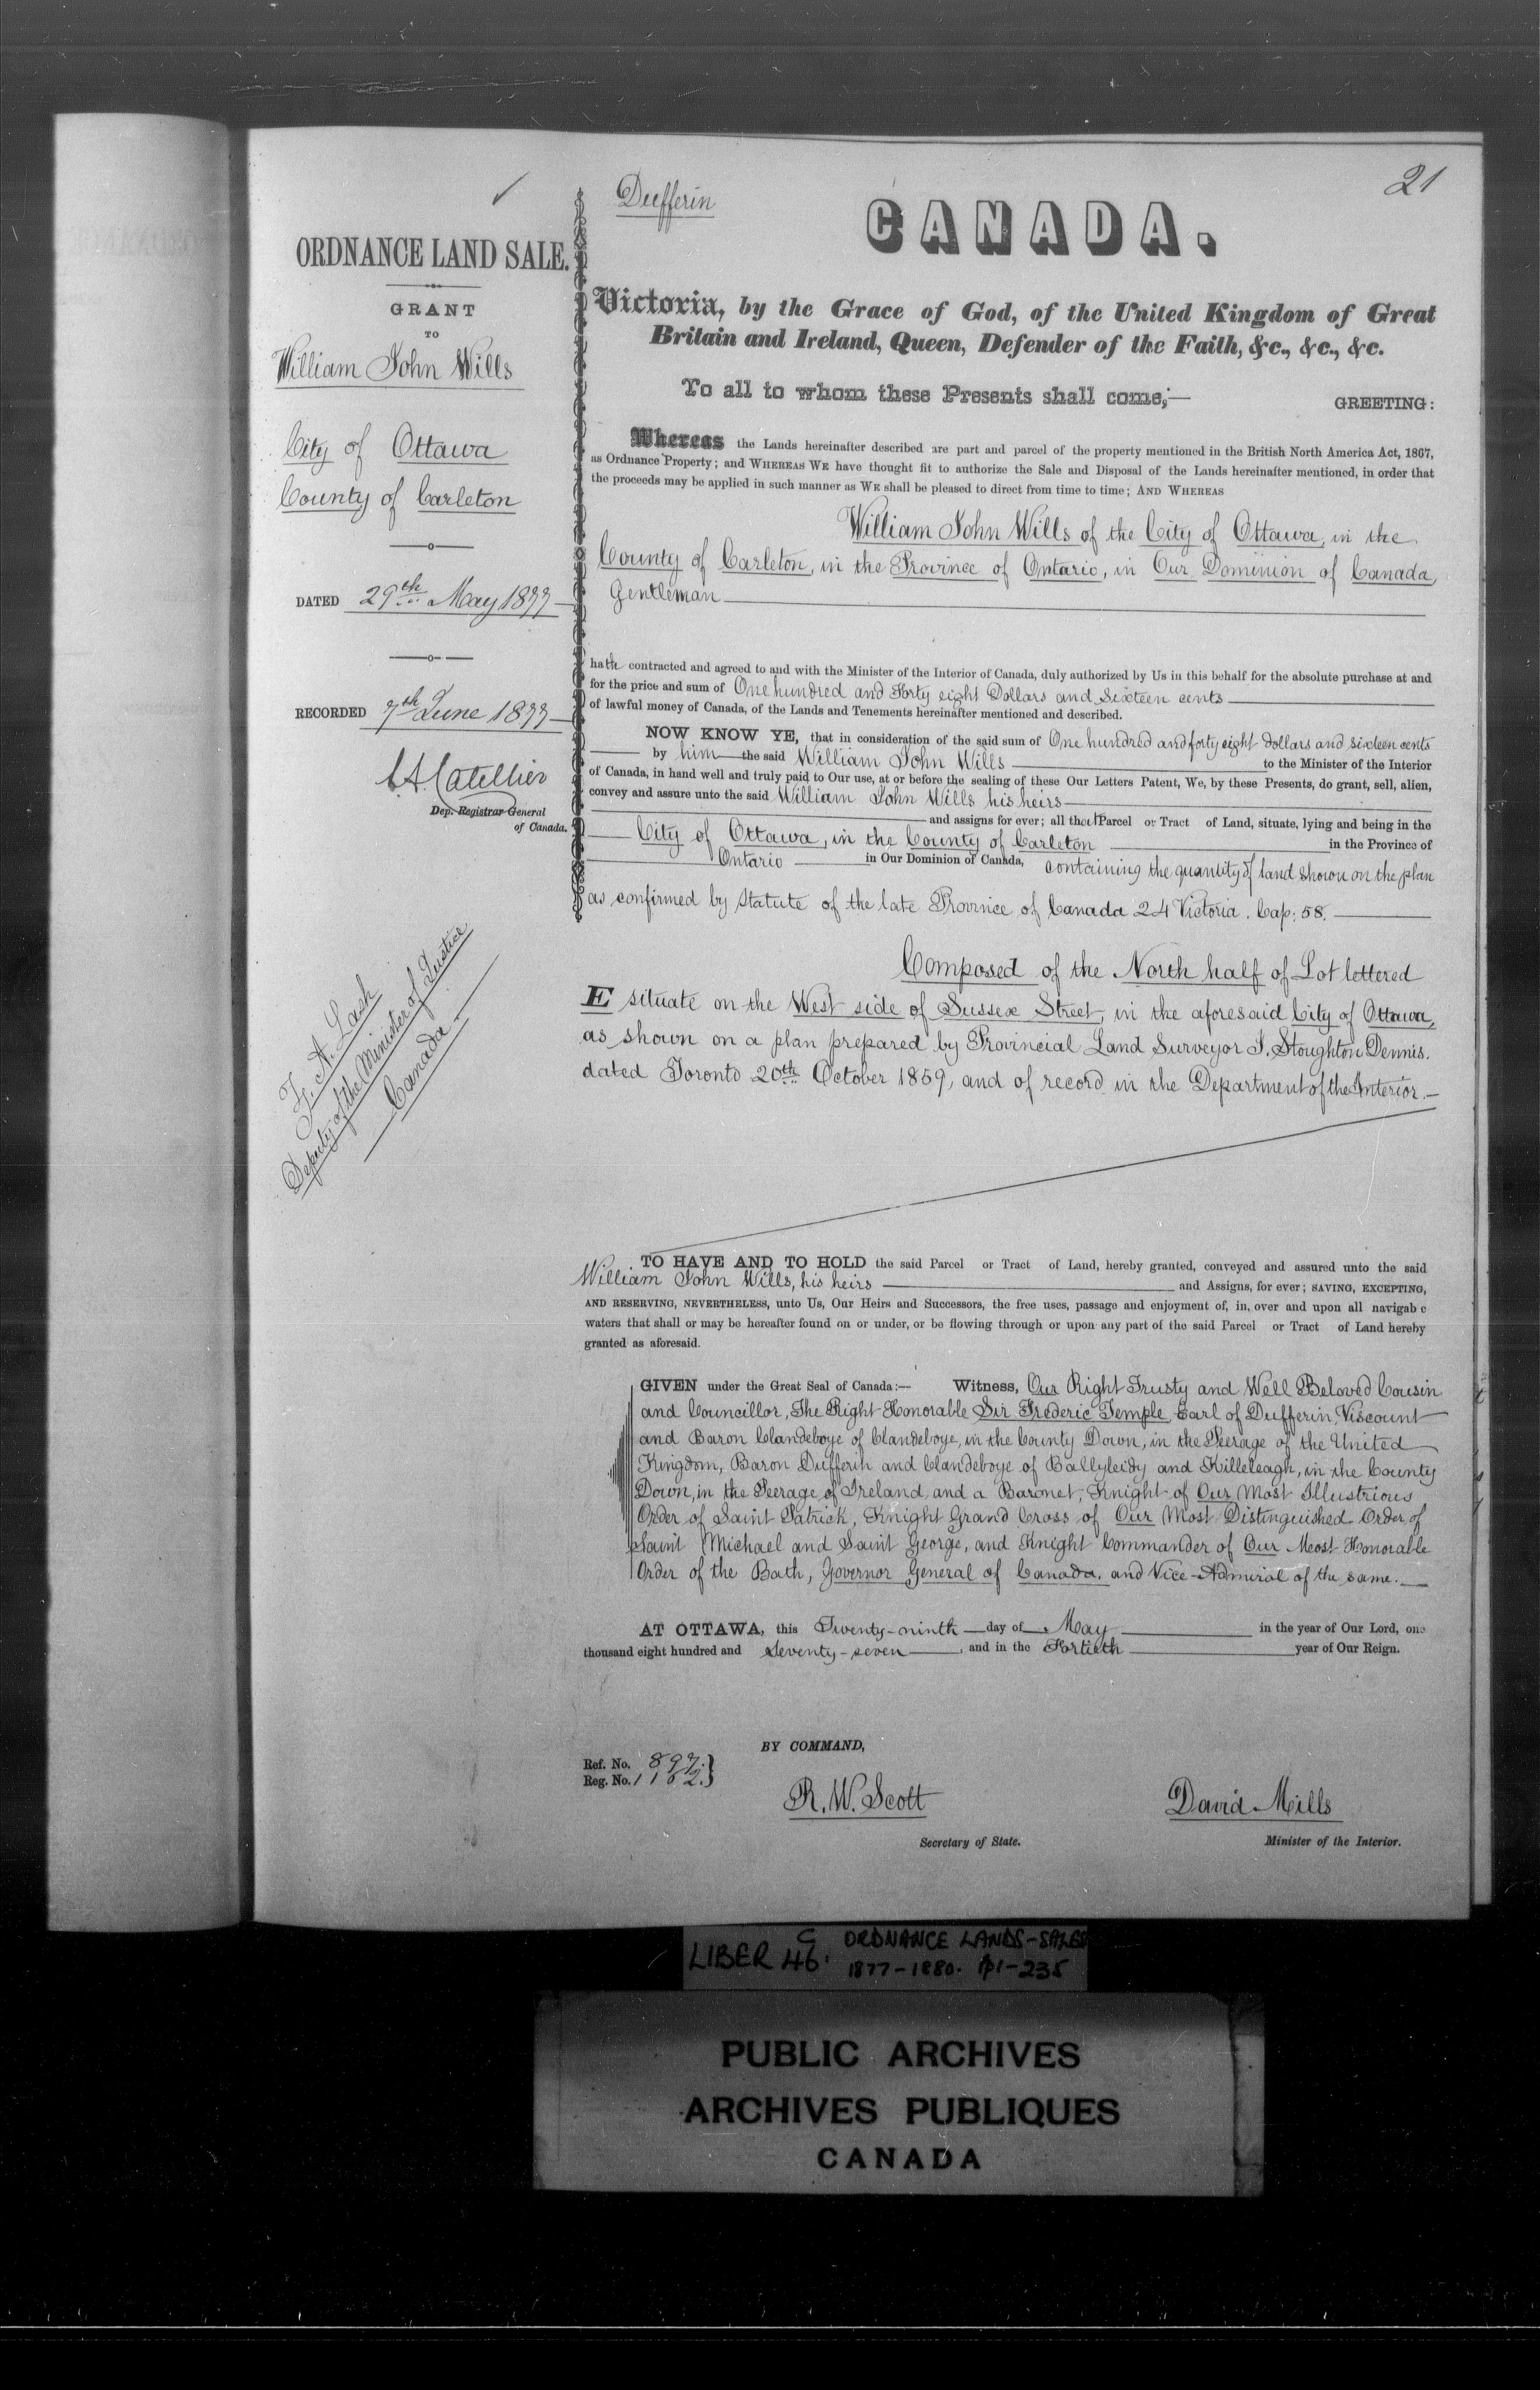 21
Dufferin
CANADA.
ORDNANCE LAND SALE.
GRANT
TO
William John Wills
City of Ottawa
County of Carleton
DATED 29th May 1877
RECORDED 7th June 1877
Dep. Registrar General
of Canada.
Deputy of the Minister of Justice
Canada
Victoria, by the Grace of God, of the United Kingdom of Great
Britain and Ireland, Queen, Defender of the Faith, &c., &c., &c.
To all to whom these Presents shall come,—
GREETING:
Whereas the Lands hereinafter described are part and parcel of the property mentioned in the British North America Act, 1867,
as Ordnance Property; and WHEREAS WE have thought fit to authorize the Sale and Disposal of the Lands hereinafter mentioned, in order that
the proceeds may be applied in such manner as WE shall be pleased to direct from time to time; AND WHEREAS
William John Wills of the City of Ottawa, in the
County of Carleton, in the Province of Ontario, in Our Dominion of Canada,
Gentleman
hath contracted and agreed to and with the Minister of the Interior of Canada, duly authorized by Us in this behalf for the absolute purchase at and
for the price and sum of One hundred and Forty eight Dollars and Sixteen cents
of lawful money of Canada, of the Lands and Tenements hereinafter mentioned and described.
NOW KNOW YE, that in consideration of the said sum of One hundred and forty eight dollars and sixteen cents
by him the said William John Wills to the Minister of the Interior
of Canada, in hand well and truly paid to Our use, at or before the sealing of these Our Letters Patent, We, by these Presents, do grant, sell, alien,
convey and assure unto the said William John Wills his heirs
and assigns for ever; all that Parcel or Tract of Land, situate, lying and being in the
City of Ottawa, in the County of Carleton in the Province of
Ontario in Our Dominion of Canada, containing the quantity of land shown on the plan
as confirmed by Statute of the late Province of Canada 24 Victoria. Cap: 58.
Composed of the North half of Lot lettered
E situate on the West side of Sussex Street, in the aforesaid City of Ottawa,
as shown on a plan prepared by Provincial Land Surveyor J. Stoughton Dennis.
dated Toronto 20th October 1859, and of record in the Department of the Interior.—
TO HAVE AND TO HOLD the said Parcel or Tract of Land, hereby granted, conveyed and assured unto the said
William John Wills, his heirs and Assigns, for ever; SAVING, EXCEPTING,
AND RESERVING, NEVERTHELESS, unto Us, Our Heirs and Successors, the free uses, passage and enjoyment of, in, over and upon all navigab e
waters that shall or may be hereafter found on or under, or be flowing through or upon any part of the said Parcel or Tract of Land hereby
granted as aforesaid.
GIVEN under the Great Seal of Canada:— Witness, Our Right Trusty and Well Beloved Cousin
and Councillor, The Right Honorable Sir Frederic Temple, Earl of Dufferin, Viscount
and Baron Clandeboye of Clandeboye, in the County Down, in the Peerage of the United
Kingdom, Baron Dufferin and Clandeboye of Ballyleidy and Killeleagh, in the County
Down, in the Peerage of Ireland, and a Baronet, Knight of Our Most Illustrious
Order of Saint Patrick, Knight Grand Cross of Our Most Distinguished Order of
Saint Michael and Saint George, and Knight Commander of Our Most Honorable
Order of the Bath, Governor General of Canada, and Vice-Admiral of the same.—
AT OTTAWA, this Twenty-ninth day of May in the year of Our Lord, one
thousand eight hundred and Seventy-seven, and in the Fortieth year of Our Reign.
BY COMMAND,
Ref. No. 897.
Reg. No. 1162.
R. W. Scott
Secretary of State.
David Mills
Minister of the Interior.
LIBER 46. C ORDNANCE LANDS-SALES
1877-1880. p1-235
PUBLIC ARCHIVES
ARCHIVES PUBLIQUES
CANADA